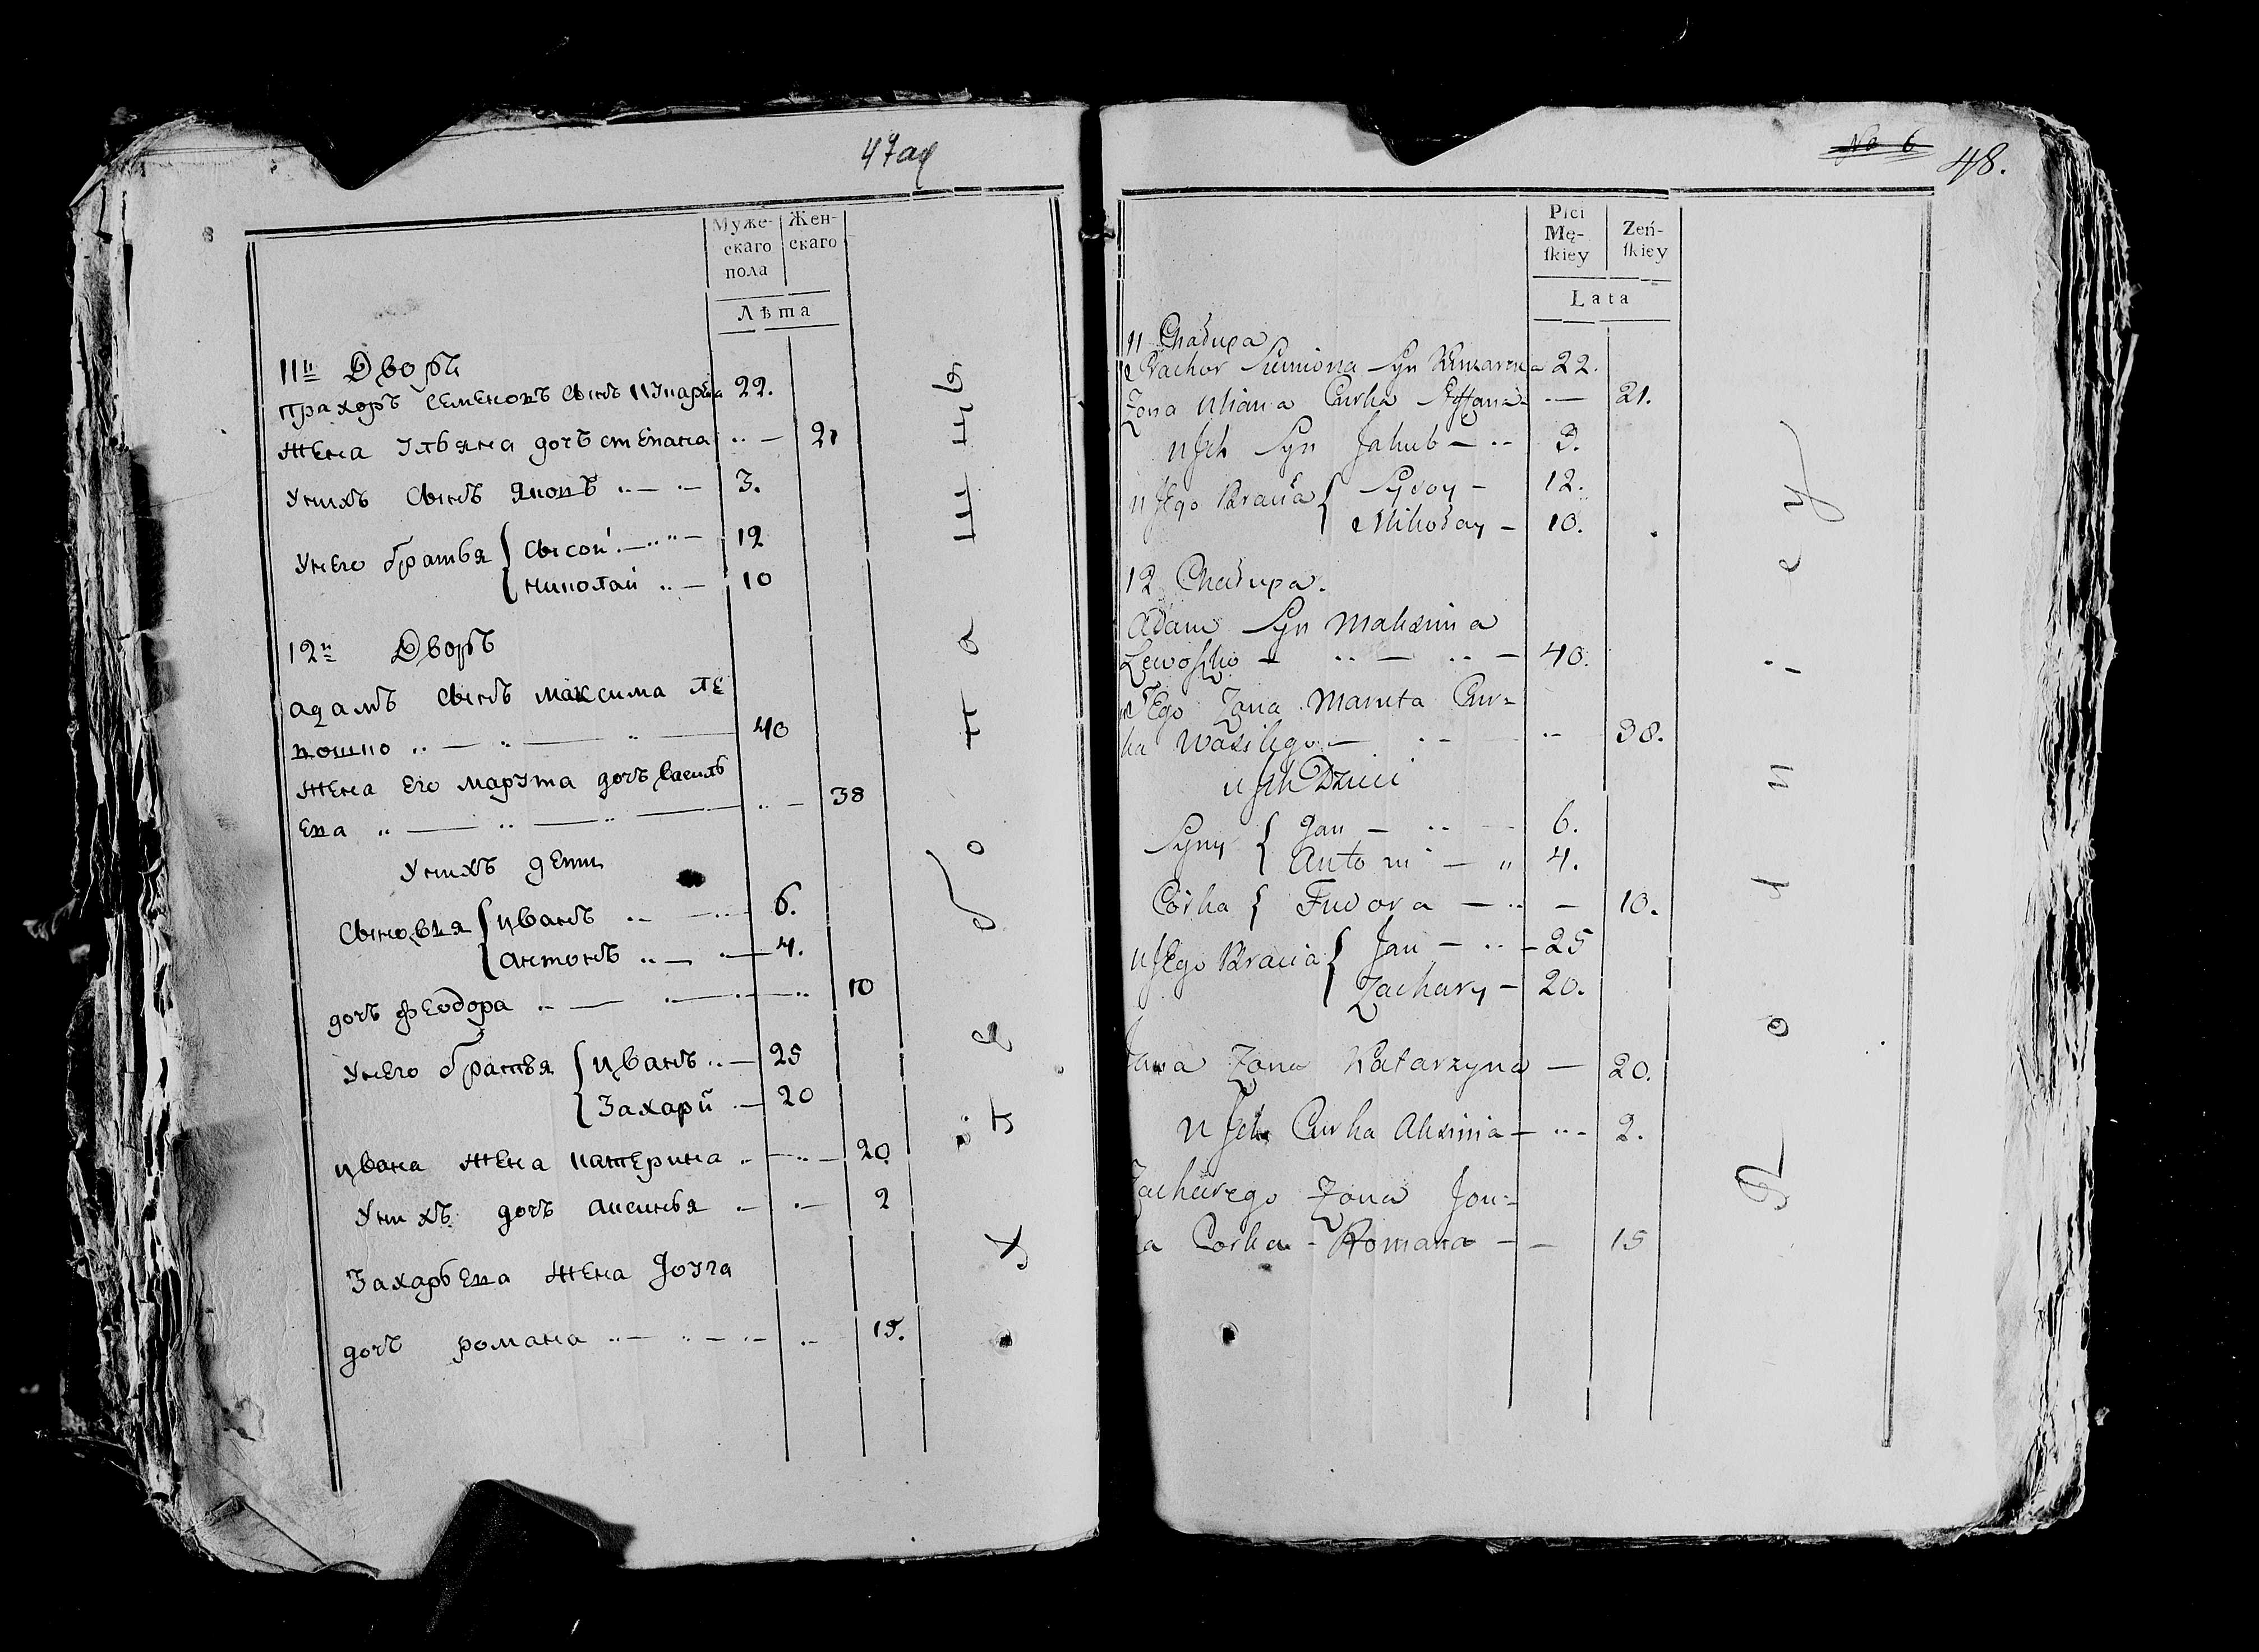 47 об
Муже-
скаго
пола
Жен-
скаго
Лѣта
11й Дворъ
прахоръ семеновъ сынъ 22.
жена Ульяна дочъ степана .. — 21
Унихъ сынъ Яковъ .. — .— 3.
Унего братья { сысой .— .. .. — 12
{ николай .. — 10
12й Дворъ
адамъ сынъ максима ле
вошко .. — .. — .. — 40
жена его марута дочъ василь
ева .. — .. — .. — .. — 38
Унихъ дети
сыновья { иванъ .. — .. — 6.
{ антонъ .. — .— 4.
дочъ феодора .. — .. — .. 10
Унего братья { иванъ .. — 25
{ Захарй .— 20
ивана жена катерина .. — .. — 20.
Унихъ дочъ аксинья .. — .— 2
Захарьева жена Юзга
дочъ романа .. — .. — .. — .. — 15.
хлебопашцы
No 6
48.
Płci
Mę-
ſkiey
Zeń-
ſkiey
Lata
11 Chałupa
Prachor Siemiona Syn 22.
Zona Uliana Curka Steffana - .— 21.
u Jch Syn Jakub — .. 3.
u Jego Bracia { Sysoy — 12.
Mikołay — 10.
12 Chałupa.
Adam Syn Maksima
Lewoszko — .. — .. — 40.
Jego Zona Maruta Cur-
ka Wasilego — .. — .. 38.
u Jch Dzieci
Syny { Jan — .. — 6.
Antoni — „ 4.
Córka { Fudora — .. — 10.
u Jego Bracia { Jan — .. — 25
Zachary — 20.
Jana Zona Katarzyna — 20.
u Jch Curka Aksinia — .. - 2.
Zacharego Zona Jou-
a Corka - Romana — — 15